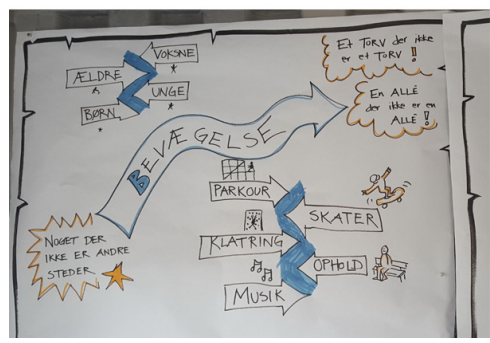 VOKSNE
ÆLDRE
UNGE
BØRN
ET TORV DER IKKE
ER ET TORV!
EN ALLÉ
DER IKKE ER EN
ALLÉ!
BEVÆGELSE
PARKOUR
SKATER
KLATRING
OPHOLD
MUSIK
NOGET DER
IKKE ER ANDRE
STEDER